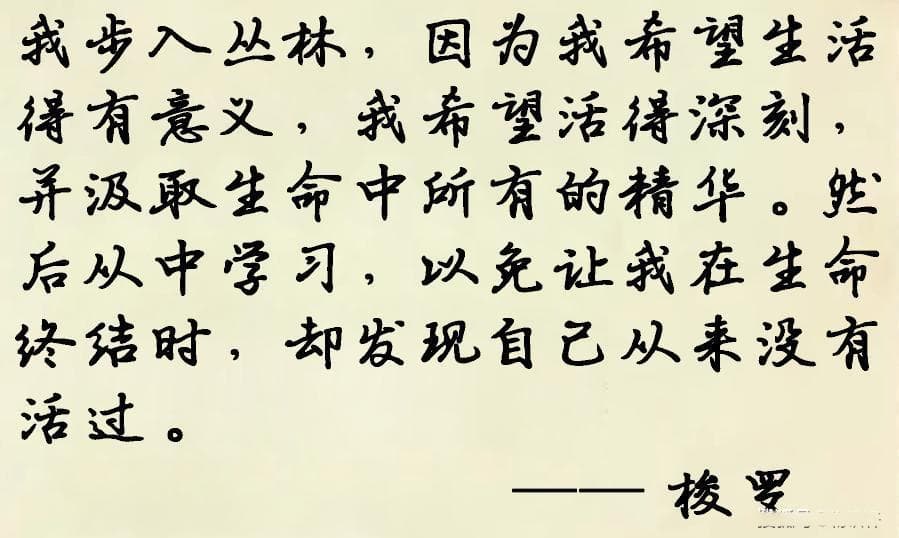 我步入丛林，因为我希望生活
得有意义，我希望活得深刻，
并汲取生命中所有的精华。然
后从中学习，以免让我在生命
终结时，却发现自己从来没有
活过。
——梭罗